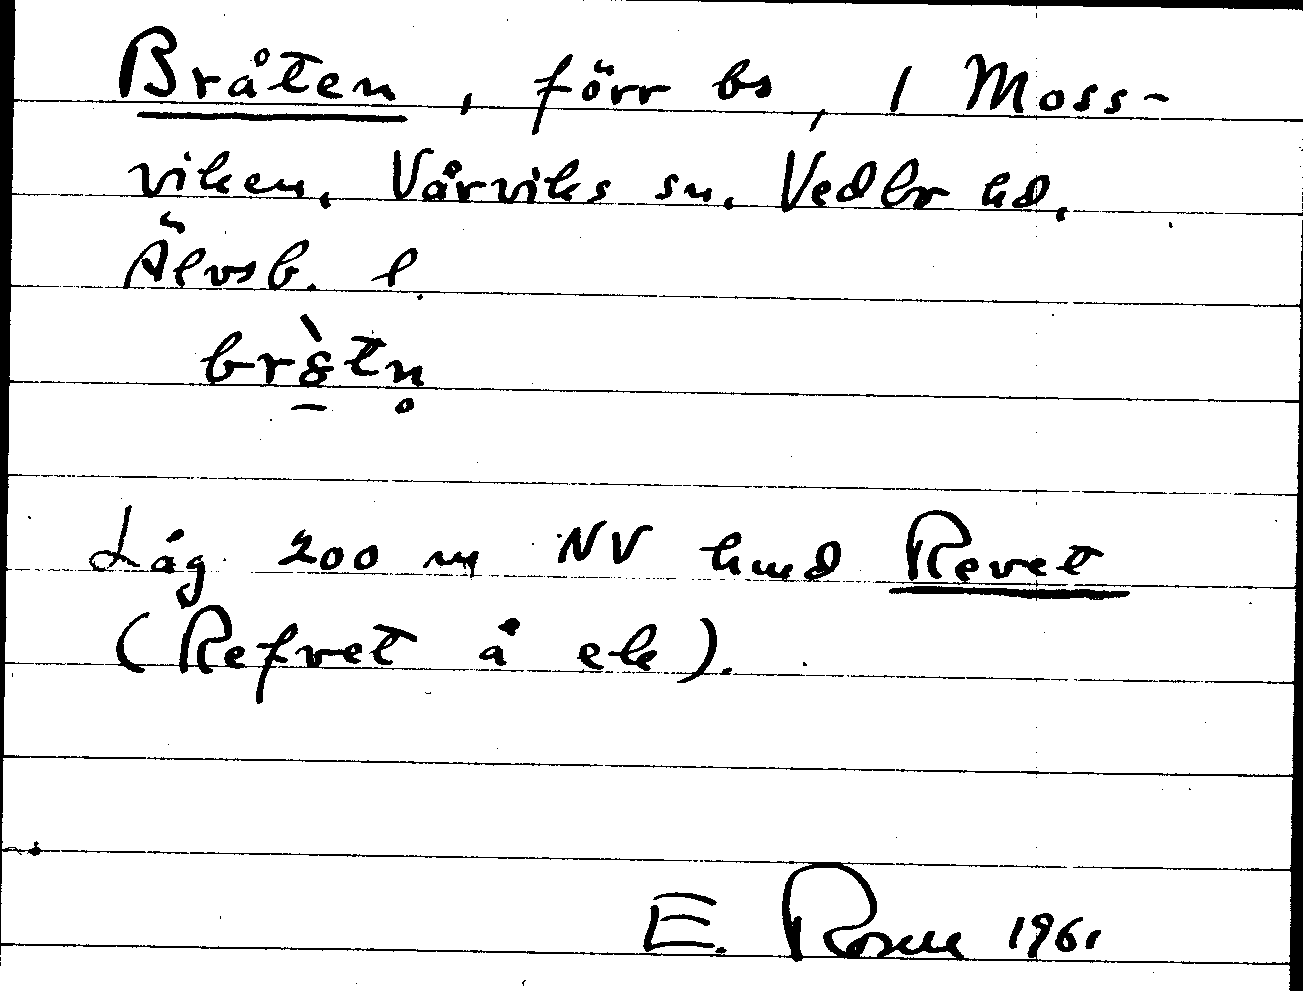 Bråten, förr bs, 1 Moss-
viken. Vårviks sn. Vedbo hd.
Älvsb. l.
Låg 200 m NV hmd Revet
(Refvet å ek).
E. Rosell 1961